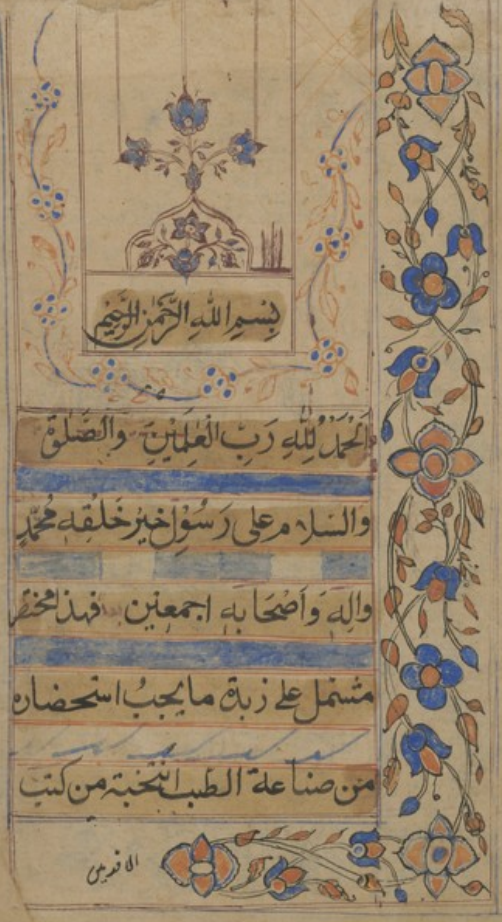 بِسْمِ اللهِ الرَّحْمٰنِ الرَّحِيْمِ
اَلْحَمْدُ لِلّٰهِ رَبِّ الْعٰلَمِيْنَ وَالصَّلٰوةُ
وَالسَلام علي رَسُوْلِ خيْرِ خَلْقِه مُحَمَّدٍ
وَالِه وَاَصْحَابه اجمعين فهذا مختصر
مشتمل علے زبدة ما يجبُ استحضاره
من صناعة الطب انتخبته من كتب
الاقدمين